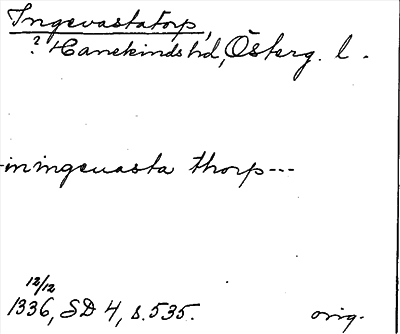 Ingevastatorp,
? Hanekinds hd, Österg. l.
-in ingeuasta thorp---
12/12
1336, SD 4, s. 535. orig.